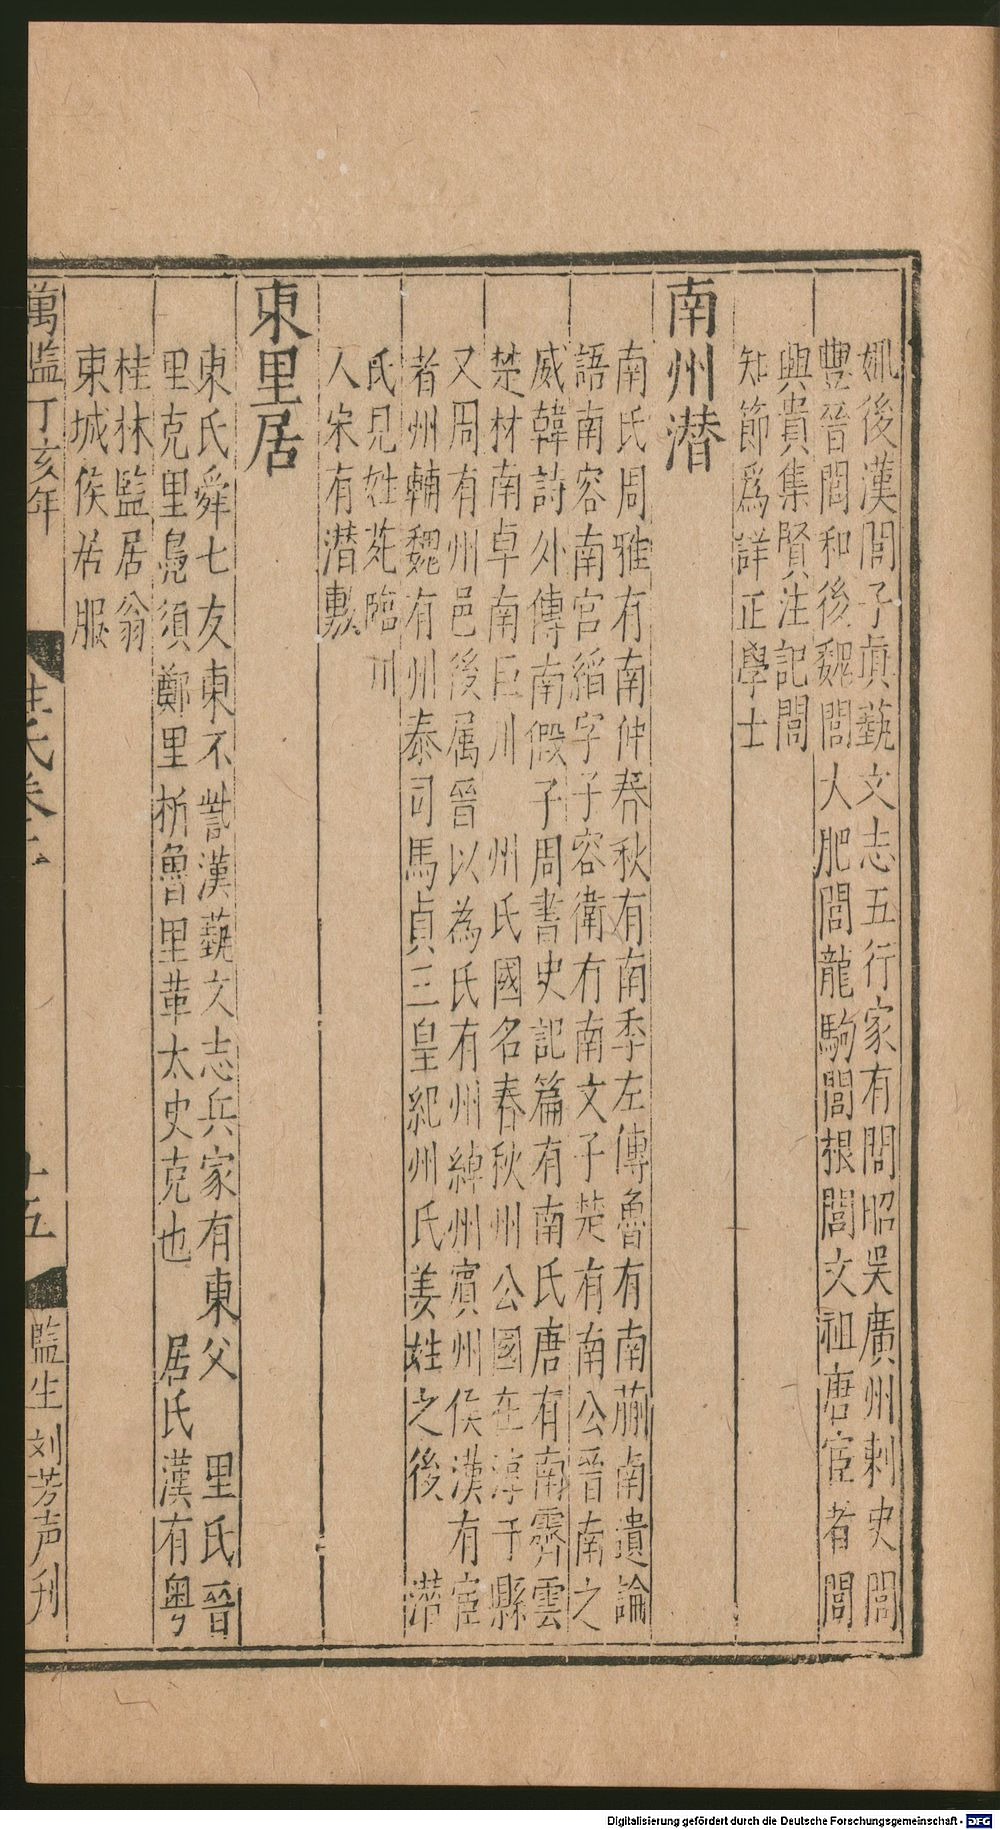 姚後漢閭子真藝文志五行家有閭昭吴廣州刺史閭
豐晉閭和後魏閭大肥閭龍駒閭根閭文祖唐宦者閭
興貴集賢注記閭
知節爲詳正學士
南州潜
南氏周雅有南仲春秋有南季左傳魯有南蒯南遺論
語南容南宮縚字子容衛有南文子楚有南公晉南之
威韓詩外傳南假子周書史記篇有南氏唐有南霽雲
楚材南卓南巨川 州氏國名春秋州公國在淳于縣
又周有州邑後属晉以為氏有州綽州賔州侯漢有宦
者州輔魏有州泰司馬貞三皇紀州氏姜姓之後 潜
氏見姓苑臨川
人宋有潜敷
東里居
東氏舜七友東不訾漢藝文志兵家有東父 里氏晉
里克里鳧須鄭里析魯里革太史克也 居氏漢有粤
桂林監居翁
東城侯居服
萬監丁亥年 十五 監生刘芳声刋
Digitalisierung gefördert durch die Deutsche Forschungsgemeinschaft - DFG